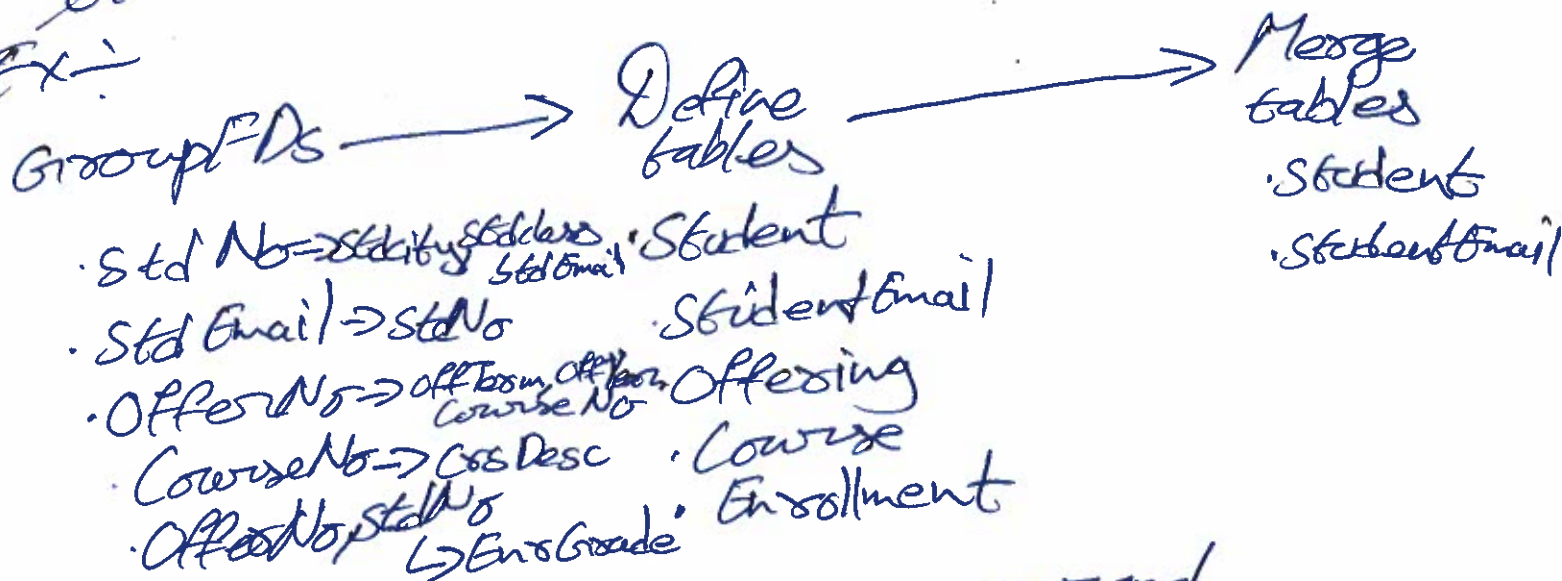 Ex:-
GroupFDs → Define tables → Merge tables
· Std No => StdCity, StdClass, StdEmail
· Std Email => StdNo
· OfferNo => OffTerm, OffYear, CourseNo
· CourseNo => CrsDesc
· OfferNo, StdNo ↳ EnrGrade
· Student
· StudentEmail
Offering
· Course
· Enrollment
· Student
· StudentEmail